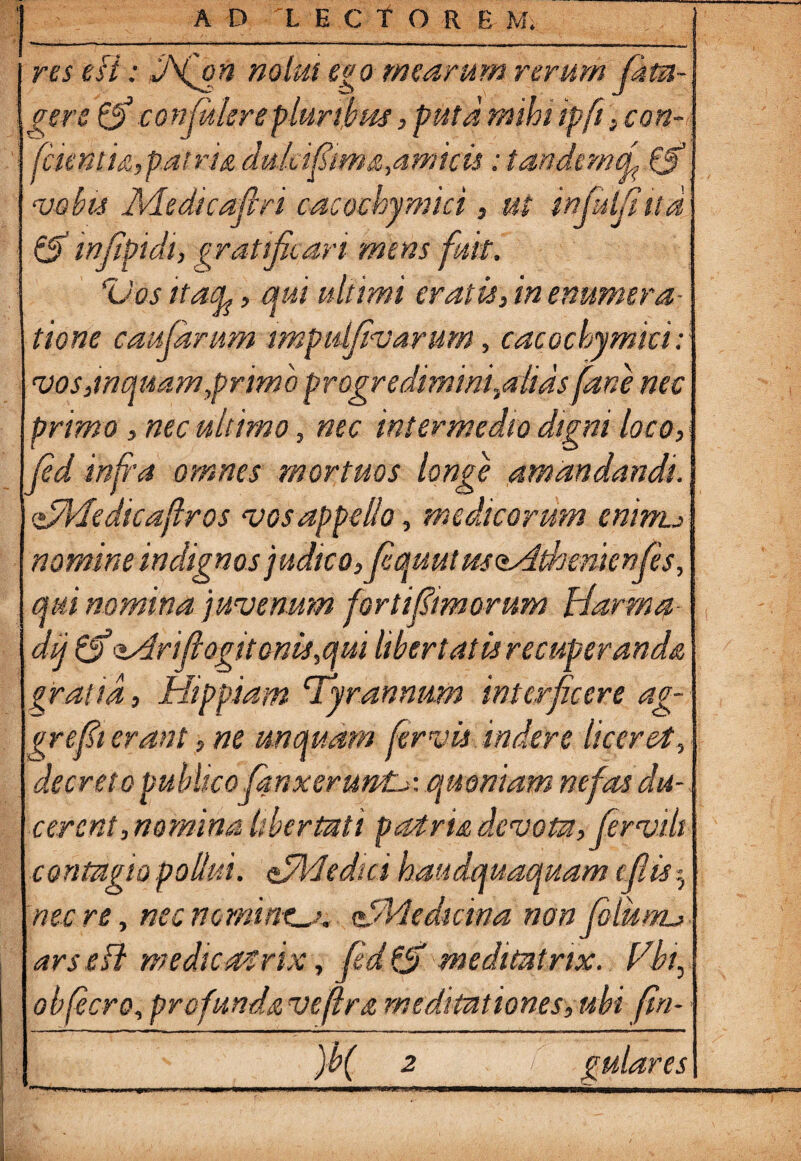 AD LECTOREM.
res est: Non nolui ego mearum rerum sata-
gere & consulere pluribus, putà mihi ipsi, con-
scientiæ, patriæ dulcißimæ, amicis: tandemq; &
vobis Medicastri cacochymici, ut insulsi ità
& insipidi, gratificari mens fuit.
Vos itaq;, qui ultimi eratis, in enumera-
tione causarum impulsivarum, cacochymici:
vos, inquam, primò progredimini, aliàs sanè nec
primo, nec ultimo, nec intermedio digni loco,
sed infra omnes mortuos longè amandandi.
Medicastros vos appello, medicorum enim
nomine indignos judico, sequutus Athenienses,
qui nomina juvenum fortißimorum Harmo-
dij & Aristogitonis, qui libertatis recuperandæ
gratiâ, Hippiam Tyrannum interficere ag-
greßi erant, ne unquam servis indere liceret,
decreto publico sanxerunt: quoniam nefas du-
cerent, nomina libertati patriæ devota, servili
contagio pollui. Medici haudquaquam estis;
nec re, nec nomine. Medicina non solum
ars est medicatrix, sed & meditatrix. Vbi,
obsecro, profundæ vestræ meditationes, ubi sin-
)b( 2 gulares